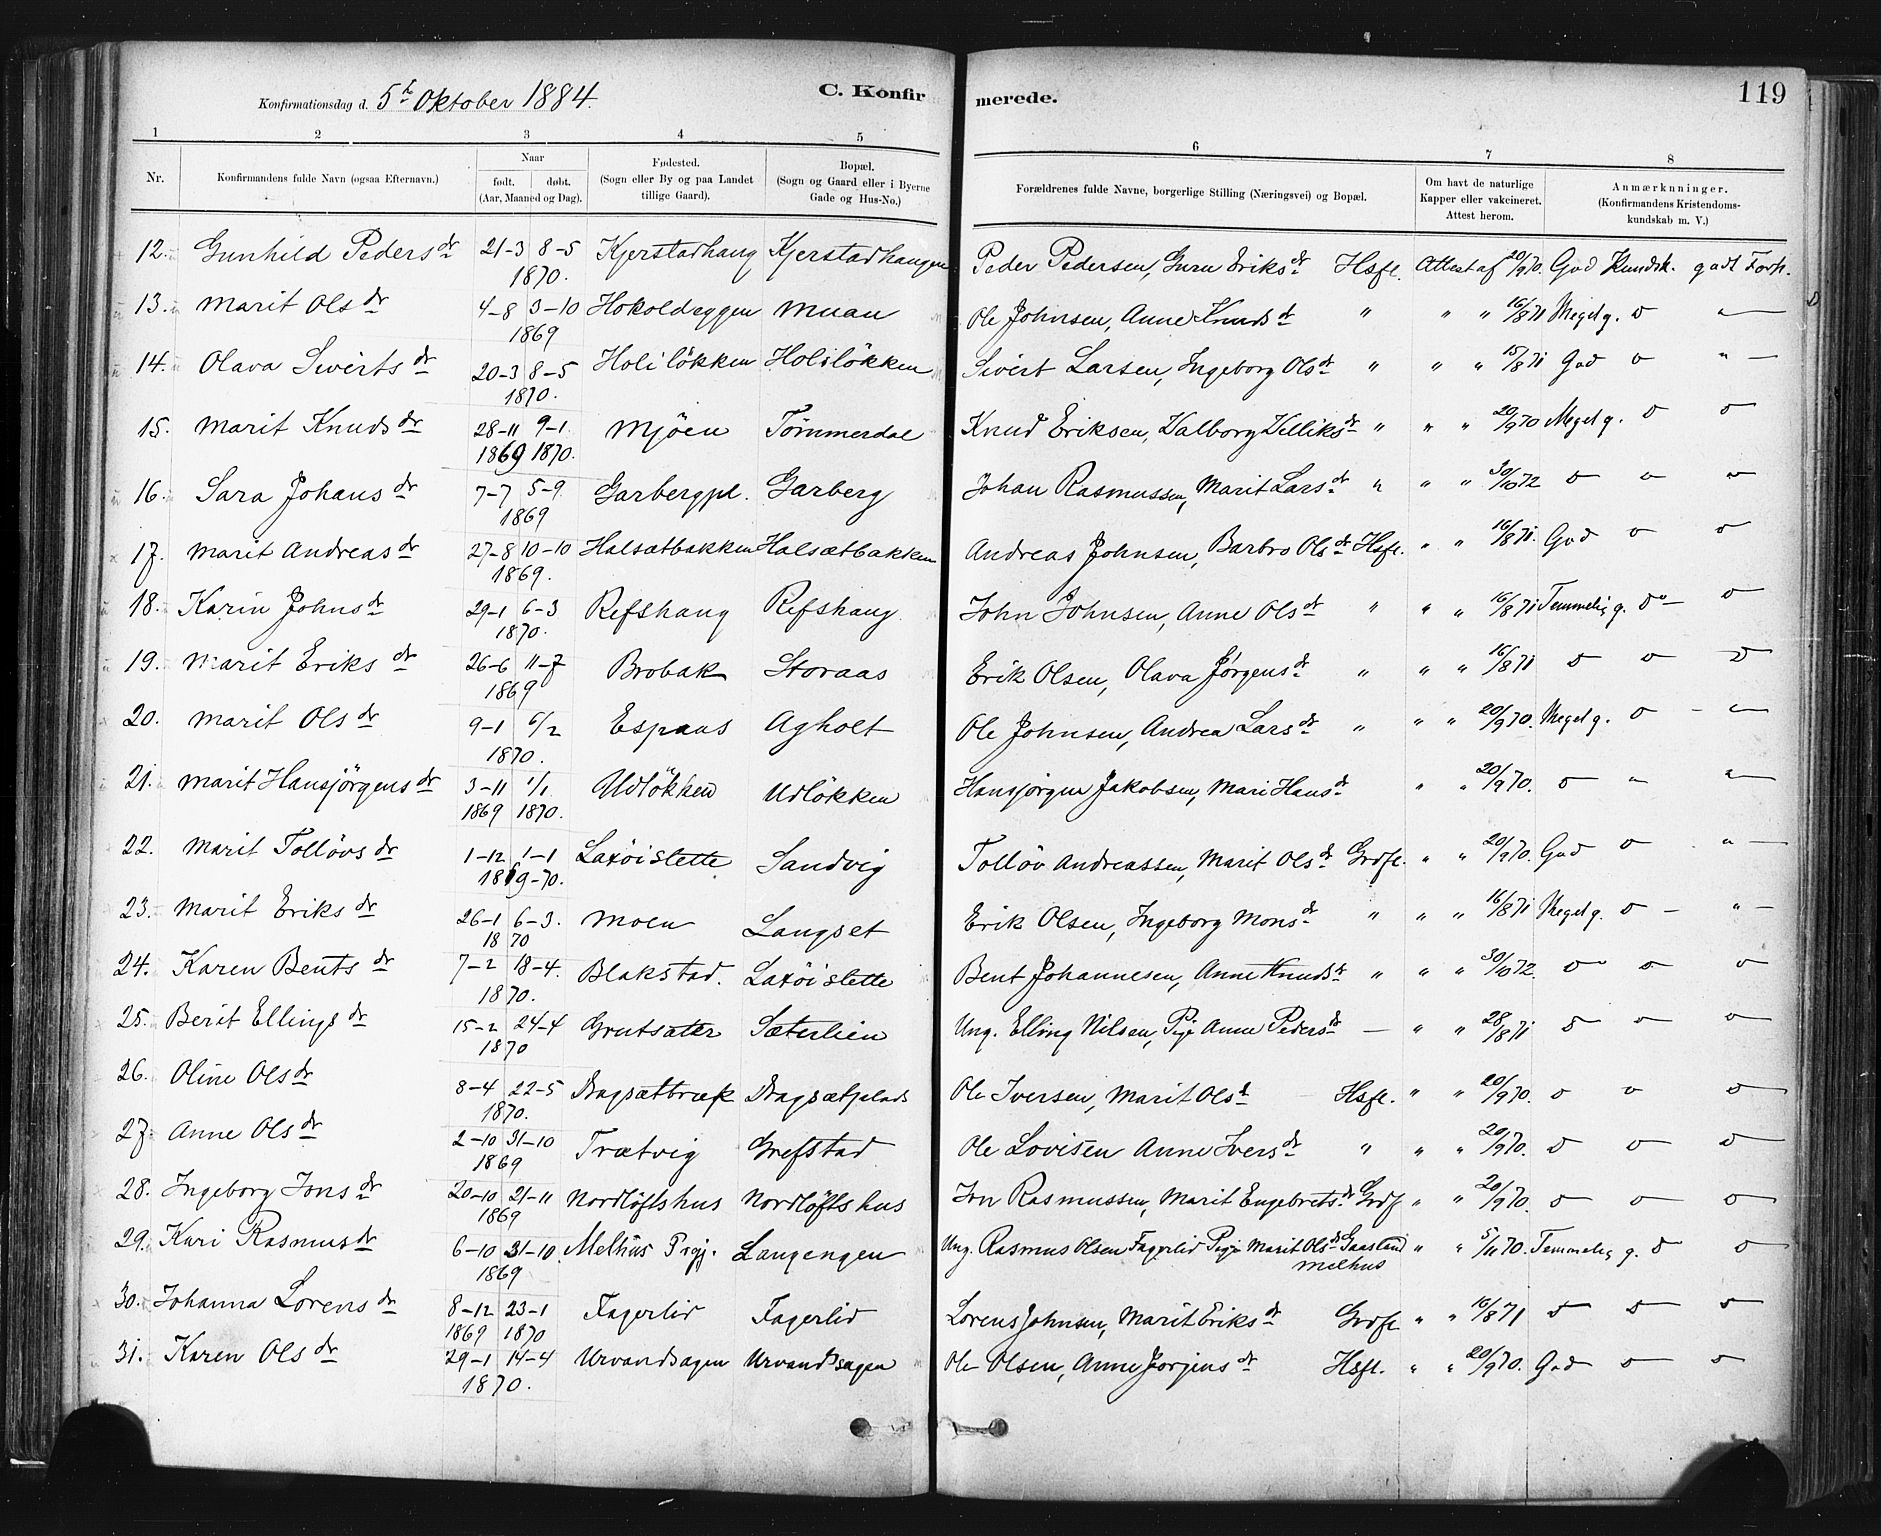 Konfirmationsdag d. 5te Oktober 1884. C. Konfirmerede. 119
1 2 3 4 5 6 7 8
Nr. Konfirmandens fulde Navn (ogsaa Efternavn.) Naar født. døbt. (Aar, Maaned og Dag). Fødested. (Sogn eller By og paa Landet tillige Gaard). Bopæl. (Sogn og Gaard eller i Byerne Gade og Hus-No.) Forældrenes fulde Navne, borgerlige Stilling (Næringsvei) og Bopæl. Om havt de naturlige Kapper eller vakcineret. Attest herom. Anmærknninger. (Konfirmandens Kristendomskundskab m. V.)
12. Gunhild Pedersdr 21-3 8-5 1870. Kjerstadhaug Kjerstadhaugen Peder Pedersen, Guru Eriksdr Hsfl. Attest af 20/9 70. God Kundsk. godt Forh.
13. Marit Olsdr 4-8 3-10 1869 Hokoldryggen Muan Ole Johnsen, Anne Knudsdr " " " 16/8 71 Meget g. o "
14. Olava Siverts dr 20-3 8-5 1870. Holsløkken Holsløkken Sivert Larsen, Ingeborg Olsdr " " " 15/8 71 God o " —
15. Marit Knudsdr 28-11 9-1. 1869 1870. Mjöen Tömmerdal Knud Eriksen, Valborg Villiksdr " " " 20/9 70 Meget g. o o
16. Sara Johansdr 7-7 5-9 1869 Garbergpl. Garberg Johan Rasmussen, Marit Larsdr " " " 30/10 72 o o o
17. Marit Andreasdr 27-8 10-10 1869. Halsætbakken Halsætbakken Andreas Johnsen, Barbro Olsdr Hsfl. " " 16/8 71. God o o
18. Karin Johnsdr 29-1 6-3 1870. Refshaug Refshaug John Johnsen, Anne Olsdr " " " 16/8 71 Temmelig g. do — o
19. Marit Eriks dr 26-6 11-7 1869 Brobak Storaas Erik Olsen, Olava Jørgensdr " " " 16/8 71 o o o
20. Marit Olsdr 9-1 6/2 1870. Espaas Agholt Ole Johnsen, Andrea Larsdr " " " 20/9 70. Meget g. o - "
21. Marit Hansjörgensdr 3-11 1/1 1869 1870. Udlökken Udlökken Hansjörgen Jakobsen, Mari Hansdr " " 20/9 70. o " "
22. Marit Tollövsdr 1-12 1-1 1869-70. Laxöislette Sandvig Tollöv Andreassen, Marit Olsdr Grdfl. " " 20/9 70. God o " —
23. Marit Eriksdr 26-1 6-3. 1870 Moen Langset Erik Olsen, Ingeborg Monsdr " " " 16/8 71 Meget g. o — " —
24. Karen Bentsdr 7-2 18-4. 1870. Blakstad. Laxöislette Bent Johannesen, Anne Knudsdr " " " 30/10 72. o o o
25. Berit Ellingsdr 15-2 24-4 1870 Grutsæter Sæterlien Ung. Elling Nilsen, Pige Anne Pedersdr — " " 28/8 71 o o o
26. Oline Olsdr 8-4 22-5 1870. Dragsætbræk Dragsætplads Ole Iversen, Marit Olsdr Hsfl. " " 20/9 70. o o o
27. Anne Olsdr 2-10 31-10 1869 Trætvig Grefstad Ole Lovisen Anne Iversdr " " " 20/9 70. o o o
28. Ingeborg Jonsdr 20-10 21-11 1869 Nordlöftshus Nordlöftshus Jon Rasmussen, Marit Engebretsdr Grdf " " 20/9 70. o o o
29. Kari Rasmusdr 6-10 31-10. 1869 Melhus Prgj. Langengen Ung. Rasmus Olsen Fagerlid Pige Marit Olsdr Gaasland " " 5/11 70. Temmelig g. o o
Melhus
30. Johanna Lorensdr 8-12 23-1 1869 1870 Fagerlid Fagerlid Lorens Johnsen, Marit Eriksdr Grdfl " " 16/8 71 o o o
31. Karen Olsdr 29-1 14-4 1870. Urvandsagen Urvandsagen Ole Olsen, Anne Jörgensdr Hsfl. " " 20/9 70. God o o